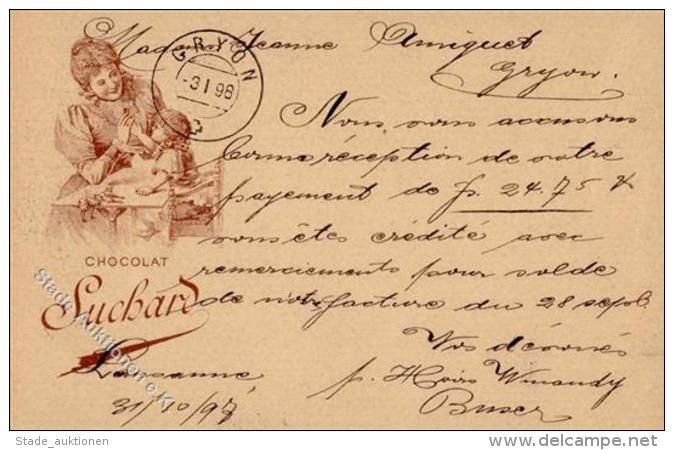 Madame Jeanne Amiguet
Gryon.
GRYON
-3 I 98
Nous vous accusons
bonne réception de votre
payement de fr. 24.75 &
vous êtes crédité avec
remerciements pour solde
de notre facture du 28 sept.
CHOCOLAT
Suchard
Vos dévoués
p. Hoirs
Buser
Lausanne,
31/10/97
Stade Auktionen e.K.
Stade_auktionen
http://www.delcampe.net